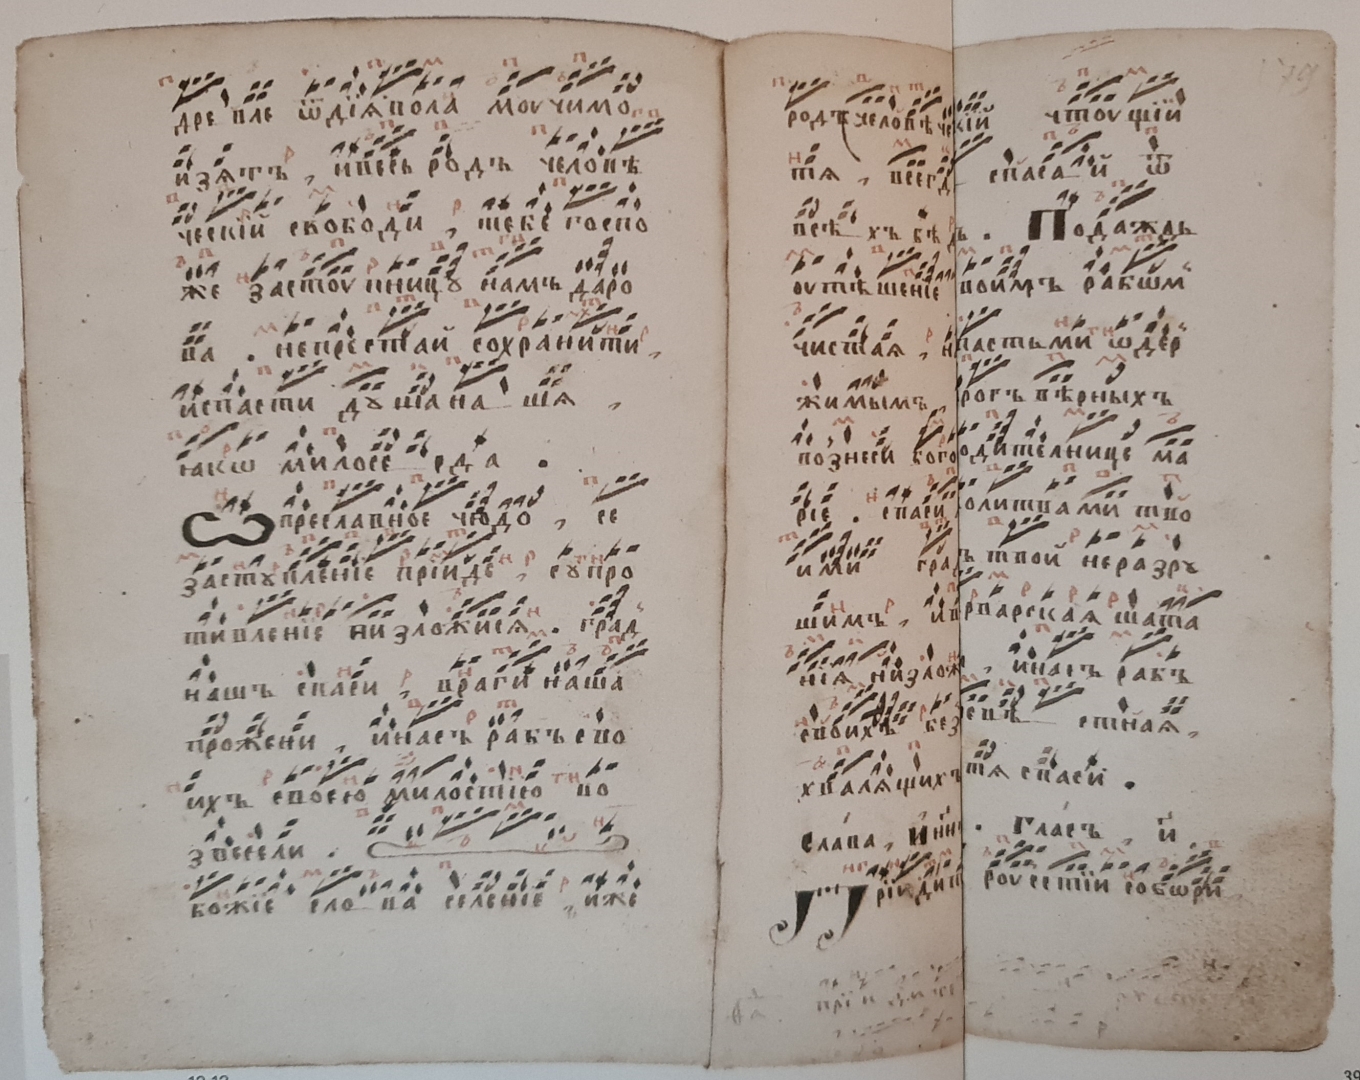 дре вле ѿдїѧвола моучимо
изѧтъ , ивесь родъ человѣ
ческїй свободи , тебе госпо
же застоу пницꙋ намъ даро
ва . непрестай сохранѝти ,
испасти дꙋшана шѧ ,
ꙗкѡ милосе рда .
Ѡ преславное чюдо , се
застꙋпленїе прїидѐ , сꙋпро
тивленїе низложисѧ . град
нашъ спаси , враги наша
прожени , инасъ рабъ сво
ихъ своею милостїю во
звесели .
божїе сло ва селенїе , иже
родъ человѣче кїй чтоу щїй
тѧ , всегд спаса й ѿ
всѣ хъ бѣ дъ . Подаждь
оутѣшенїе воимъ рабѡм
чистаѧ , н пастьми ѡдер
жимымъ , рогъ вѣрныхъ
вознеси бого одителнице ма
рїе . спаси олитвами тво
ими гра ъ твой неразрꙋ
шимъ , ив рварскаѧ шата
нїѧ низлож , инасъ рабъ
своихъ без стнаѧ ,
хвалѧщихъ тѧ спаси .
Слава , ины . Гласъ , и
Прїидит роусстїи собѡри